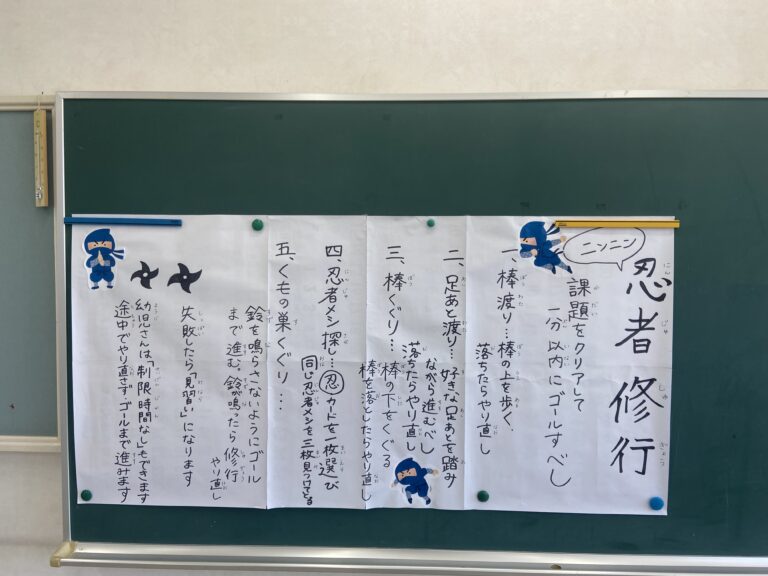 忍者修行
ニンニン
課題をクリアして
一分以内にゴールすべし
一、棒渡り…棒の上を歩く、
落ちたらやり直し
二、足あと渡り…好きな足あとを踏み
ながら進むべし
落ちたらやり直し
三、棒くぐり…棒の下をくぐる
棒を落としたらやり直し
四、忍者メシ探し…忍カードを一枚選び
同じ忍者メシを三枚見つけてとる
五、くもの巣くぐり…
鈴を鳴らさないようにゴール
まで進む。鈴が鳴ったら修行
やり直し
失敗したら「見習い」になります
幼児さんは「制限時間なし」もできます
途中でやり直さずゴールまで進みます